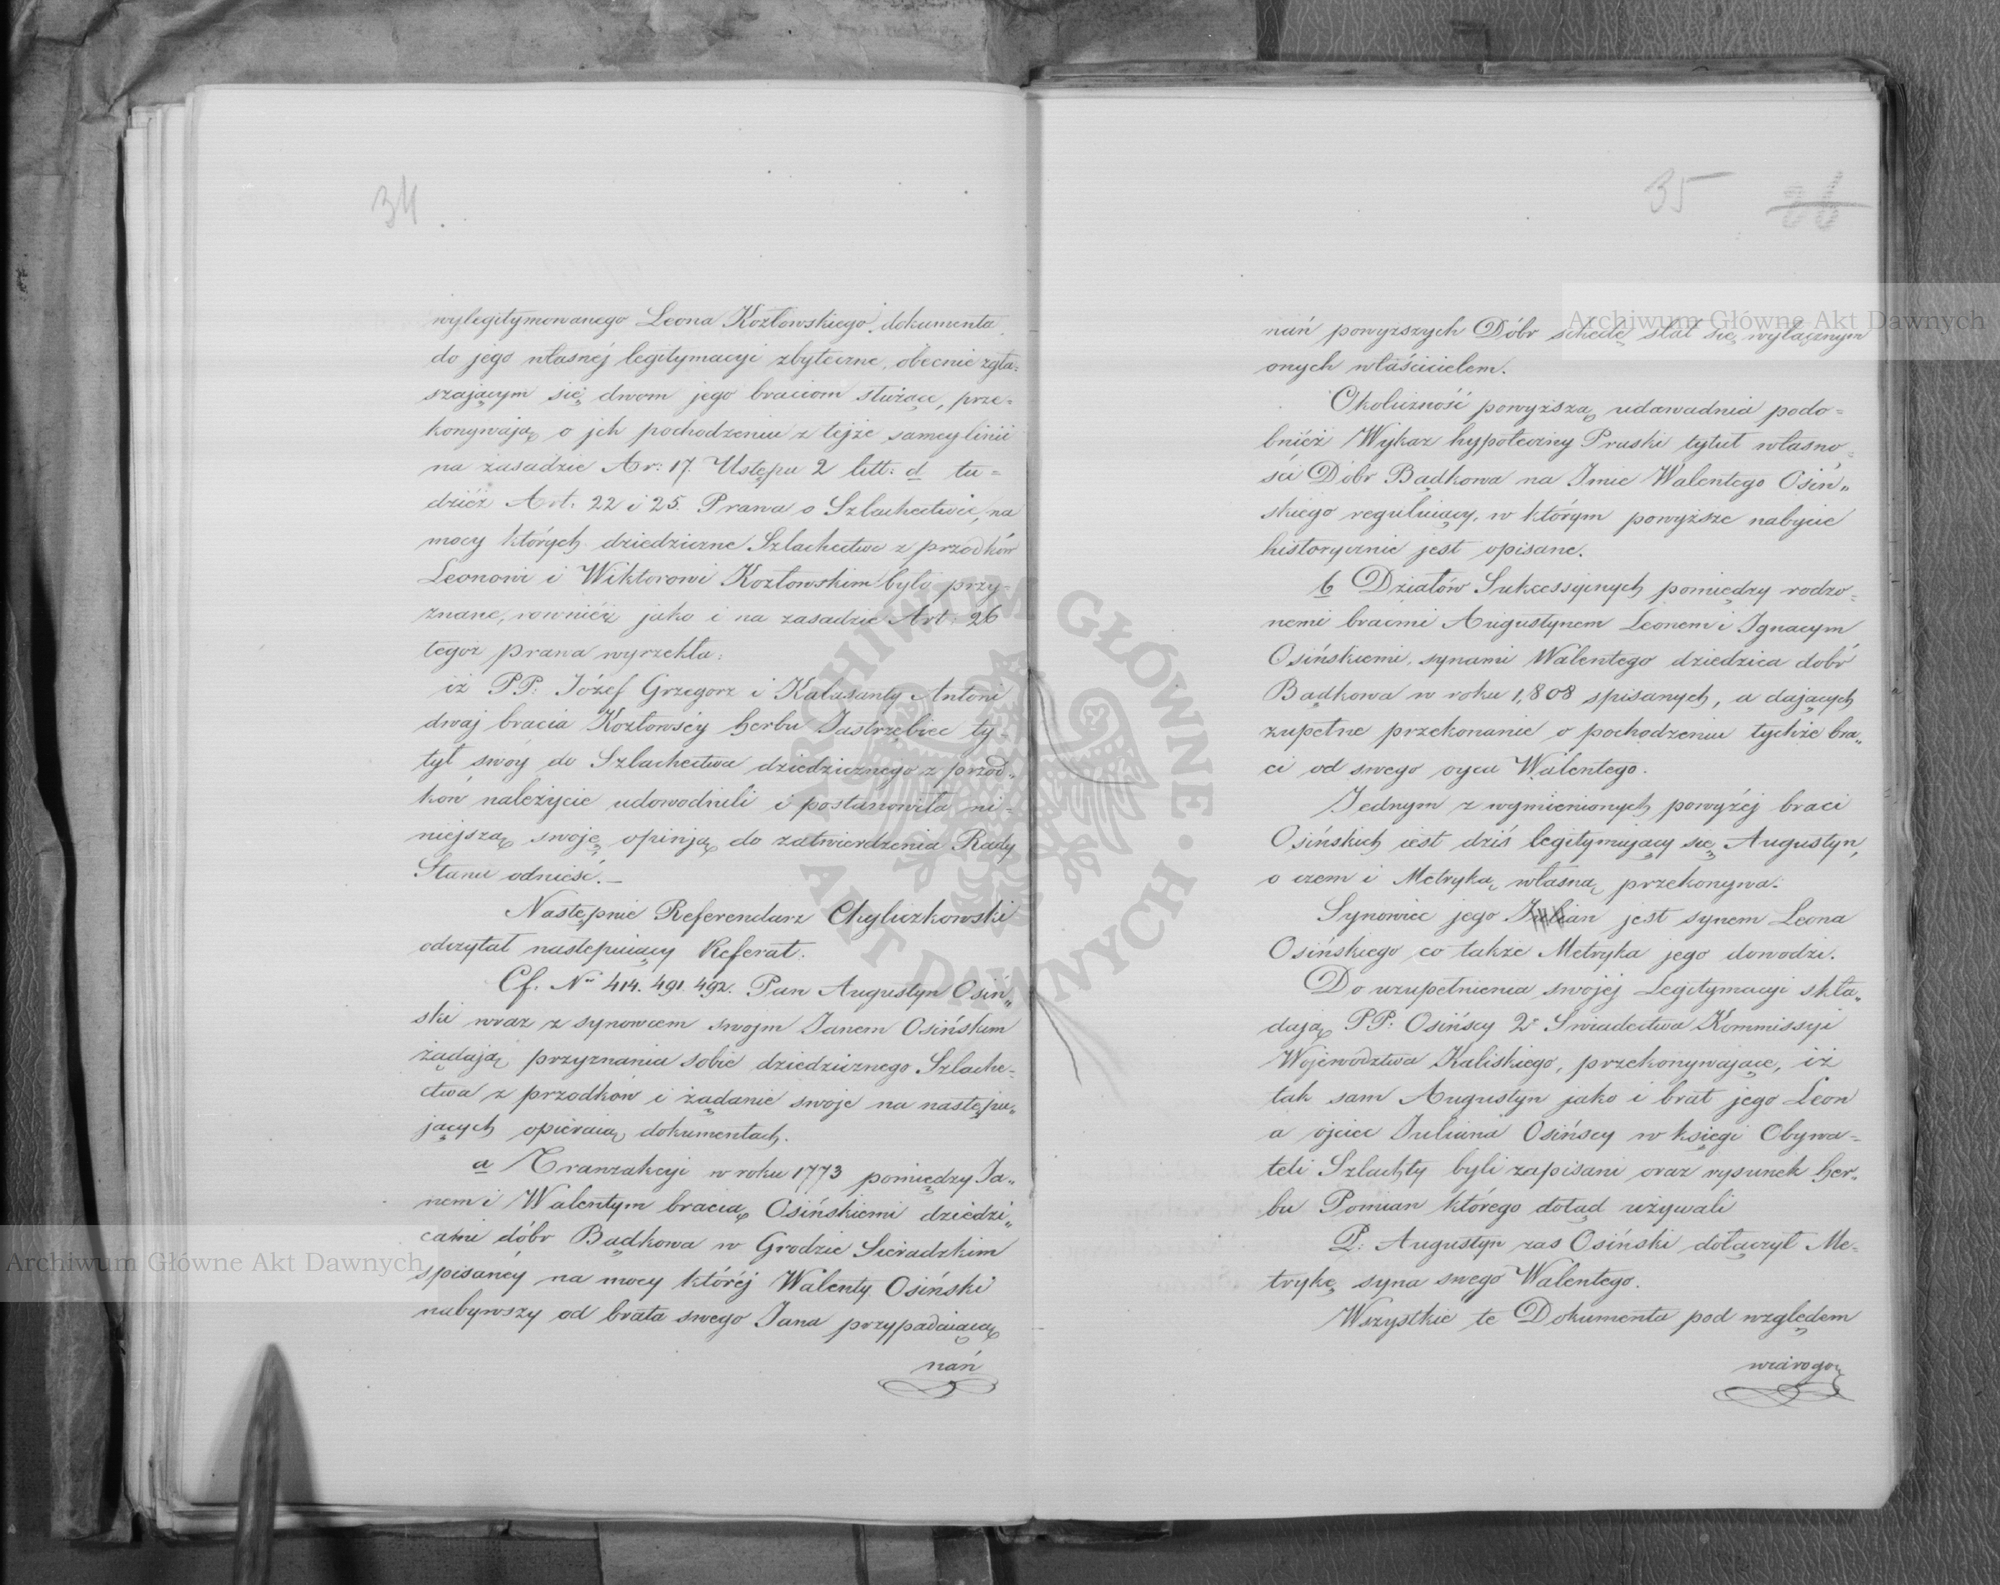 34.
wylegitymowanego Leona Kozłowskiego, dokumenta
do jego własnéj legitymacyi zbyteczne, obecnie zgła-
szającym się dwom jego braciom służące, prze-
konywają o jch pochodzeniu z tejże samey linii
na zasadzie Ar: 17. Ustępu 2 litt: d tu-
dzież Art. 22 i 25. Prawa o Szlachectwie, na
mocy których dziedziczne Szlachectwo z przodków
Leonowi i Wiktorowi Kozłowskim było przy-
znane, rownież jako i na zasadzie Art: 26
tegoż prawa wyrzekła:
iż PP: Józef Grzegorz i Kalasanty Antoni
dwaj bracia Kozłowscy herbu Jastrzębiec ty-
tył swóy do Szlachectwa dziedzicznego z przod-
ków należycie udowodnili i postanowiła ni-
niejszą swoję opinją do zatwierdzenia Rady
Stanu odnieść.—
Następnie Referendarz Chyliczkowski
odczytał następuiący Referat:
Cf. Nr 414. 491. 492. Pan Augustyn Osiń-
ski wraz z synowcem swojm Janem Osińskim
żądają przyznania sobie dziedzicznego Szlache-
ctwa z przodków i żądanie swoje na następu-
jących opieraią dokumentach.
a Tranzakcyi w roku 1773 pomiędzy Ja-
nem i Walentym bracią Osińskiemi dziedzi-
cami dóbr Bądkowa w Grodzie Sieradzkim
spisaney na mocy któréj Walenty Osiński
nabywszy od brata swego Jana przypadaiącą
nań
35
nań powyższych Dóbr schedę stał się wyłącznym
onych właścicielem.
Okoliczność powyższą udawadnia podo-
bnież Wykaz hypoteczny Pruski tytuł własno-
ści Dóbr Bądkowa na Jmie Walentego Osiń-
skiego reguluiący, w którym powyższe nabycie
historycznie jest opisane.
b Działów Sukcessyjnych pomiędzy rodzo-
nemi braćmi Augustynem Leonem i Jgnacym
Osińskiemi, synami Walentego dziedzica dobr
Bądkowa w roku 1,808 spisanych, a dających
zupełne przekonanie o pochodzeniu tychże bra-
ci od swego oyca Walentego.
Jednym z wymienionych powyżéj braci
Osińskich iest dziś legitymujący się Augustyn,
o czem i Metryka własna przekonywa.
Synowiec jego Julian jest synem Leona
Osińskiego co także Metryka jego dowodzi.
Do uzupełnienia swojéj Legitymacyi skła-
dają PP: Osińscy 2 Swiadectwa Kommissyi
Wojewodztwa Kaliskiego, przekonywające, iż
tak sam Augustyn jako i brat jego Leon
a ojciec Juliana Osińscy w księgi Obywa-
teli Szlachty byli zapisani oraz rysunek her-
bu Pomian którego dotąd używali
P. Augustyn zas Osiński dołączył Me-
trykę syna swego Walentego.
Wszystkie te Dokumenta pod względem
wiarogo-
Archiwum Główne Akt Dawnych
Archiwum Główne Akt Dawnych
ARCHIWUM GŁÓWNE AKT DAWNYCH